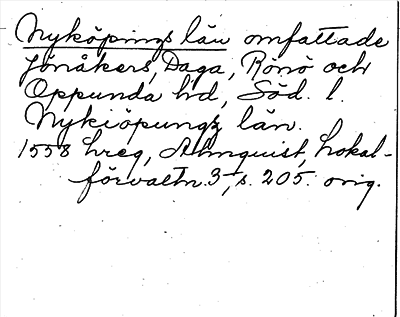 Nyköpings län omfattade
Jönåkers, Daga, Rönö och
Oppunda hd, Söd. l.
Nykiöpungz län.
1558 hreg, Almquist, Lokal-
förvaltn. 3, s. 205. orig.